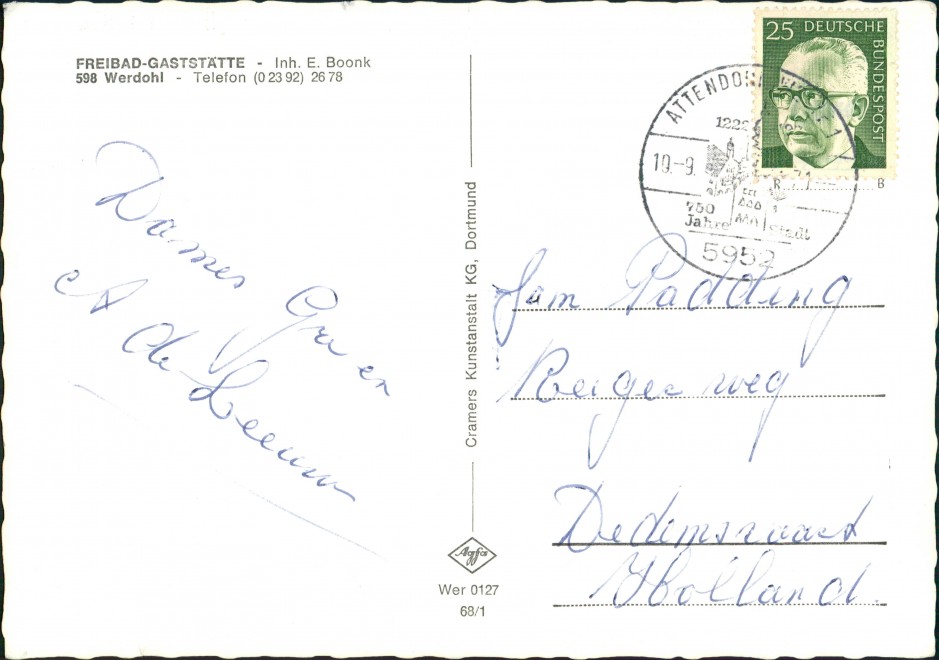 FREIBAD-GASTSTÄTTE - Inh. E. Boonk
598 Werdohl - Telefon (0 23 92) 26 78
Dames
Gra en
A de Leeuw
Cramers Kunstanstalt KG, Dortmund
Agfa
Wer 0127
68/1
25 DEUTSCHE
BUNDESPOST
ATTENDORN
1222
19.-9.
750
Jahre Stadt
5952
R
B
Fam Padding
weg
Dedemsvaart
Holland.